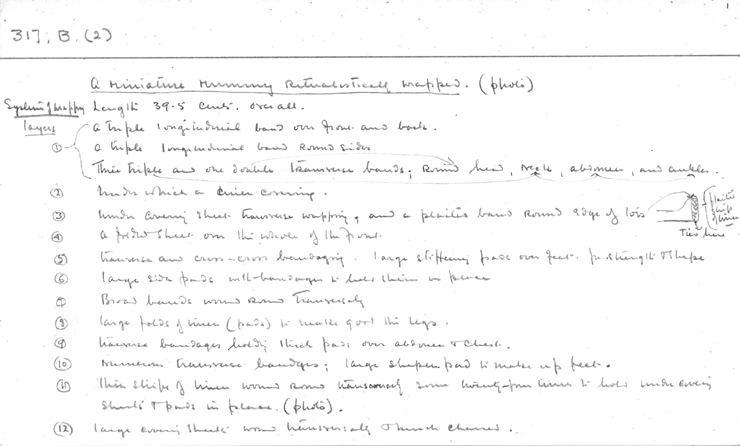 317, B. (2)
A Miniature Mummy Ritualistically wrapped. (photo)
System of wrapping Length 39.5 cents. overall.
layers
① A triple longitudinal band over front and back.
A triple longitudinal band round sides
Three triple and one double transverse bands; round head, neck, abdomen, and ankles.
② Under which a linen covering.
③ Under covering sheet transverse wrapping, and a plaited band round edge of
plaited strips of linen
Tied here
④ A folded sheet over the whole of the front.
⑤ Transverse and cross-cross bandaging. large stiffening pads over feet. for strength & shape
⑥ large side pads with bandages to hold them in place
⑦ Broad bands wound round transversely
⑧ large folds of linen (pads) to make good the legs.
⑨ transverse bandages holding thick pads over abdomen & chest.
⑩ Numerous transverse bandges; large shapen pad to make up feet.
⑪ Thin strips of linen wound round transversely some twenty-four times to hold under covering
sheets & pads in place. (photo).
⑫ large covering sheets wound transversally & much charred.